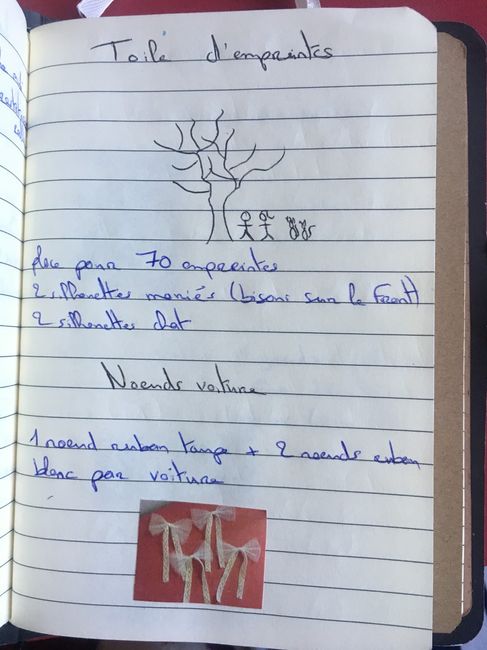 Toile d'empreintes
place pour 70 empreintes
2 silhouettes mariés (bisous sur le front)
2 silhouettes chat
Noeuds voiture
1 noeud ruban + 2 noeuds ruban
blanc par voiture